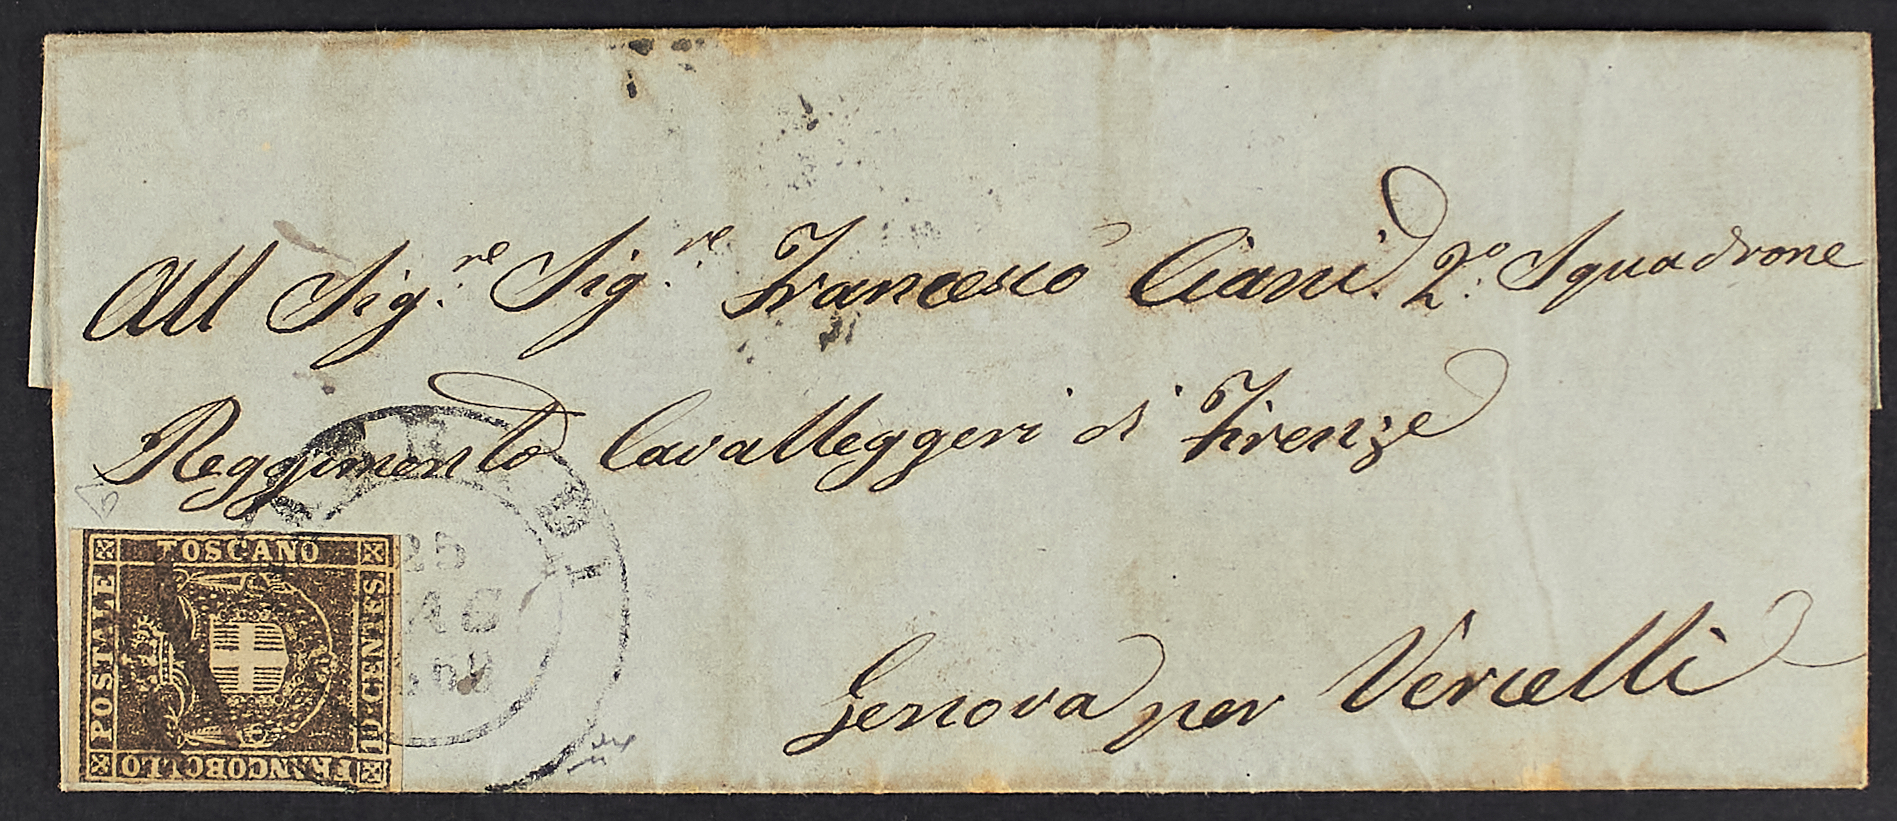 All Sig.re Sig.re Francesco Ciani. 2.o Squadrone
Reggimento Cavalleggeri di Firenze
Genova per Vercelli
TOSCANO
POSTALE
10 CENTES
FRANCOBOLLO
25
AG